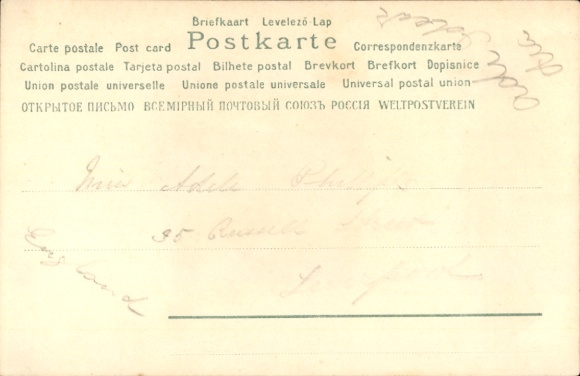 Briefkaart Levelező-Lap
Carte postale Post card Postkarte Correspondenzkarte
Cartolina postale Tarjeta postal Bilhete postal Brevkort Brefkort Dopisnice
Union postale universelle Unione postale universale Universal postal union
ОТКРЫТОЕ ПИСЬМО ВСЕМІРНЫЙ ПОЧТОВЫЙ СОЮЗЪ РОССІЯ WELTPOSTVEREIN
Miss Adele Phillips
35 Russell Street
Liverpool
England